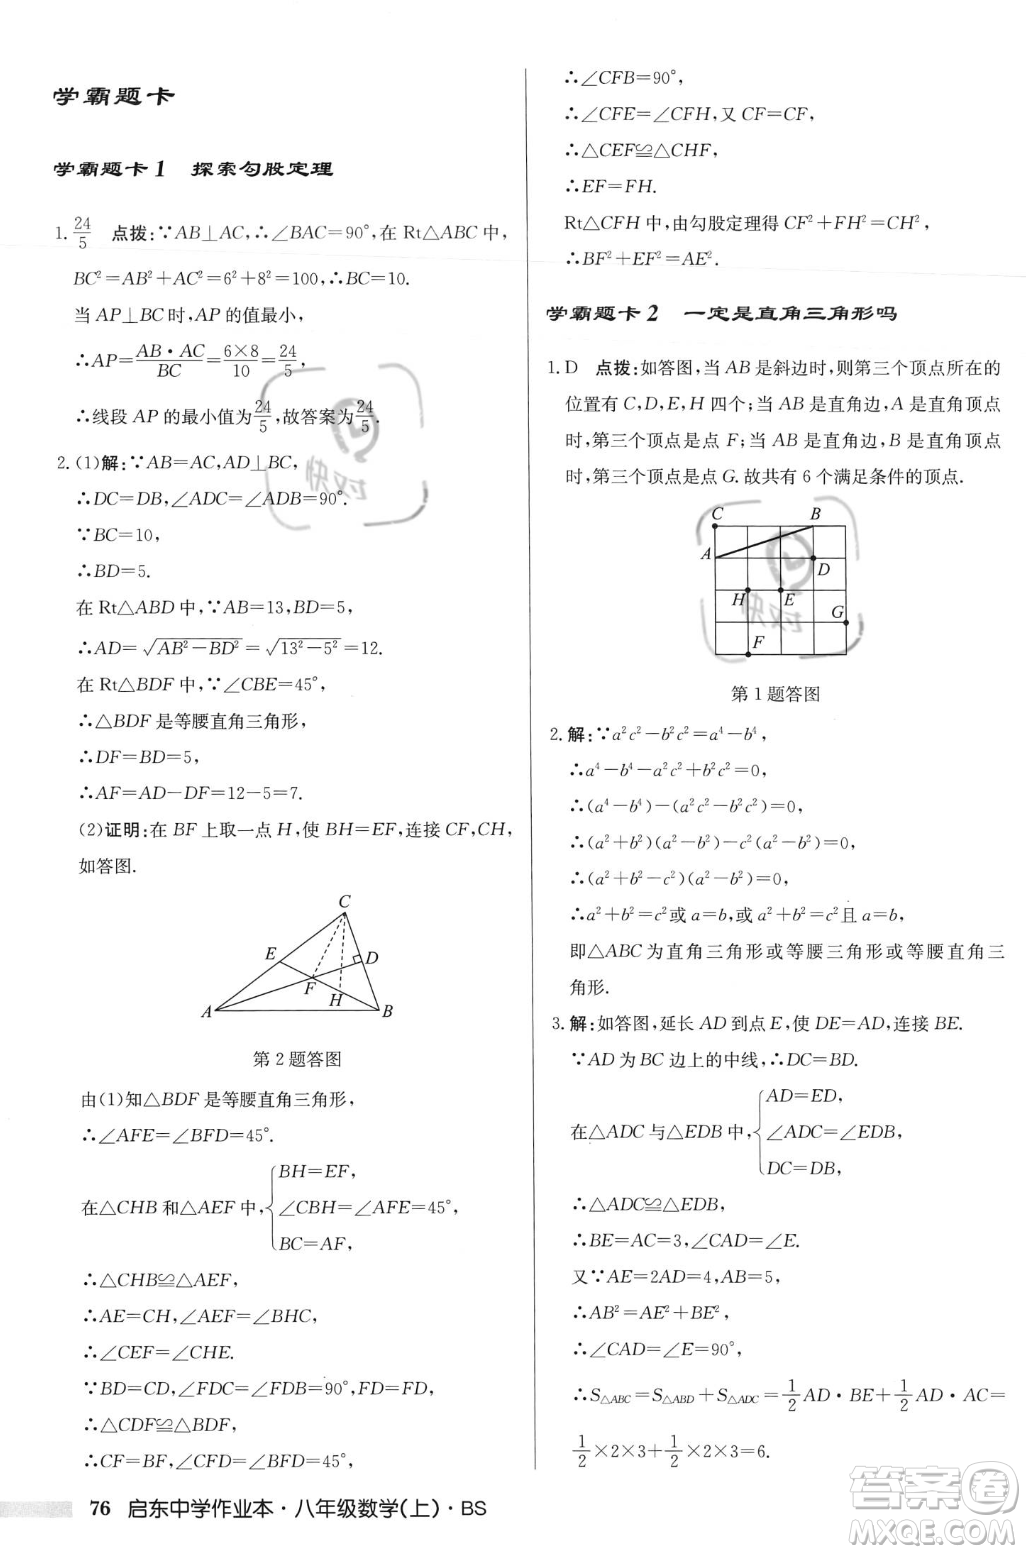 学霸题卡
学霸题卡 1 探索勾股定理
1. 24/5 点拨:∵AB⊥AC,∴∠BAC=90°,在 Rt△ABC 中,
BC²=AB²+AC²=6²+8²=100,∴BC=10.
当 AP⊥BC 时,AP 的值最小,
∴AP=AB·AC/BC=6×8/10=24/5,
∴线段 AP 的最小值为24/5,故答案为24/5.
2. (1)解:∵AB=AC,AD⊥BC,
∴DC=DB,∠ADC=∠ADB=90°.
∵BC=10,
∴BD=5.
在 Rt△ABD 中,∵AB=13,BD=5,
∴AD=√(AB²-BD²)=√(13²-5²)=12.
在 Rt△BDF 中,∵∠CBE=45°,
∴△BDF 是等腰直角三角形,
∴DF=BD=5,
∴AF=AD-DF=12-5=7.
(2)证明:在 BF 上取一点 H,使 BH=EF,连接 CF,CH,
如答图.
C
E
D
F
H
A
B
第 2 题答图
由(1)知△BDF 是等腰直角三角形,
∴∠AFE=∠BFD=45°.
在△CHB 和△AEF 中,{BH=EF,
∠CBH=∠AFE=45°,
BC=AF,
∴△CHB≌△AEF,
∴AE=CH,∠AEF=∠BHC,
∴∠CEF=∠CHE.
∵BD=CD,∠FDC=∠FDB=90°,DF=DF,
∴△CDF≌△BDF,
∴CF=BF,∠CFD=∠BFD=45°,
∴∠CFB=90°,
∴∠CFE=∠CFH,又 CF=CF,
∴△CEF≌△CHF,
∴EF=FH.
Rt△CFH 中,由勾股定理得 CF²+FH²=CH²,
∴BF²+EF²=AE².
学霸题卡 2 一定是直角三角形吗
1. D 点拨:如答图,当 AB 是斜边时,则第三个顶点所在的
位置有 C,D,E,H 四个;当 AB 是直角边,A 是直角顶点
时,第三个顶点是点 F;当 AB 是直角边,B 是直角顶点
时,第三个顶点是点 G.故共有 6 个满足条件的顶点.
C
B
A
D
H
E
G
F
第 1 题答图
2. 解:∵a²c²-b²c²=a⁴-b⁴,
∴a⁴-b⁴-a²c²+b²c²=0,
∴(a⁴-b⁴)-(a²c²-b²c²)=0,
∴(a²+b²)(a²-b²)-c²(a²-b²)=0,
∴(a²+b²-c²)(a²-b²)=0,
∴a²+b²=c²或 a=b,或 a²+b²=c²且 a=b,
即△ABC 为直角三角形或等腰三角形或等腰直角三
角形.
3. 解:如答图,延长 AD 到点 E,使 DE=AD,连接 BE.
∵AD 为 BC 边上的中线,∴DC=BD.
在△ADC 与△EDB 中,{AD=ED,
∠ADC=∠EDB,
DC=DB,
∴△ADC≌△EDB,
∴BE=AC=3,∠CAD=∠E.
又∵AE=2AD=4,AB=5,
∴AB²=AE²+BE²,
∴∠CAD=∠E=90°,
∴S△ABC=S△ABD+S△ADC=1/2 AD·BE+1/2 AD·AC=
1/2×2×3+1/2×2×3=6.
76 启东中学作业本·八年级数学(上)·BS
快对
快对
答案圈